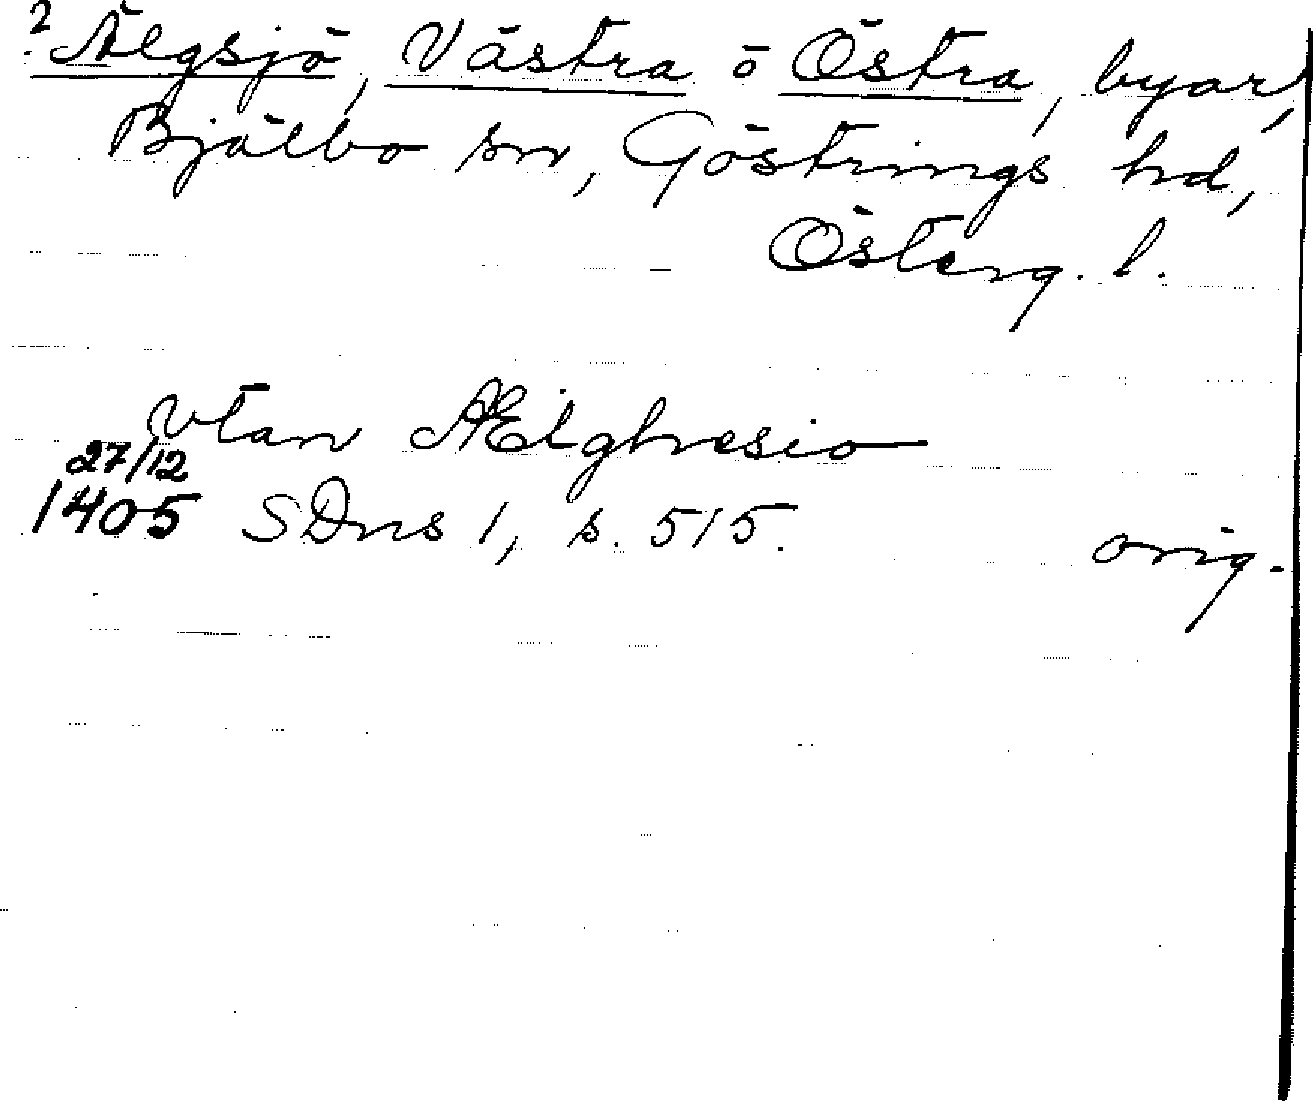 ? Älgsjö, Västra o Östra, byar,
Bjälbo sn, Göstrings hd,
Österg. l.
vtan Ælghesio
27/12
1405 SDns 1, s. 515. orig.